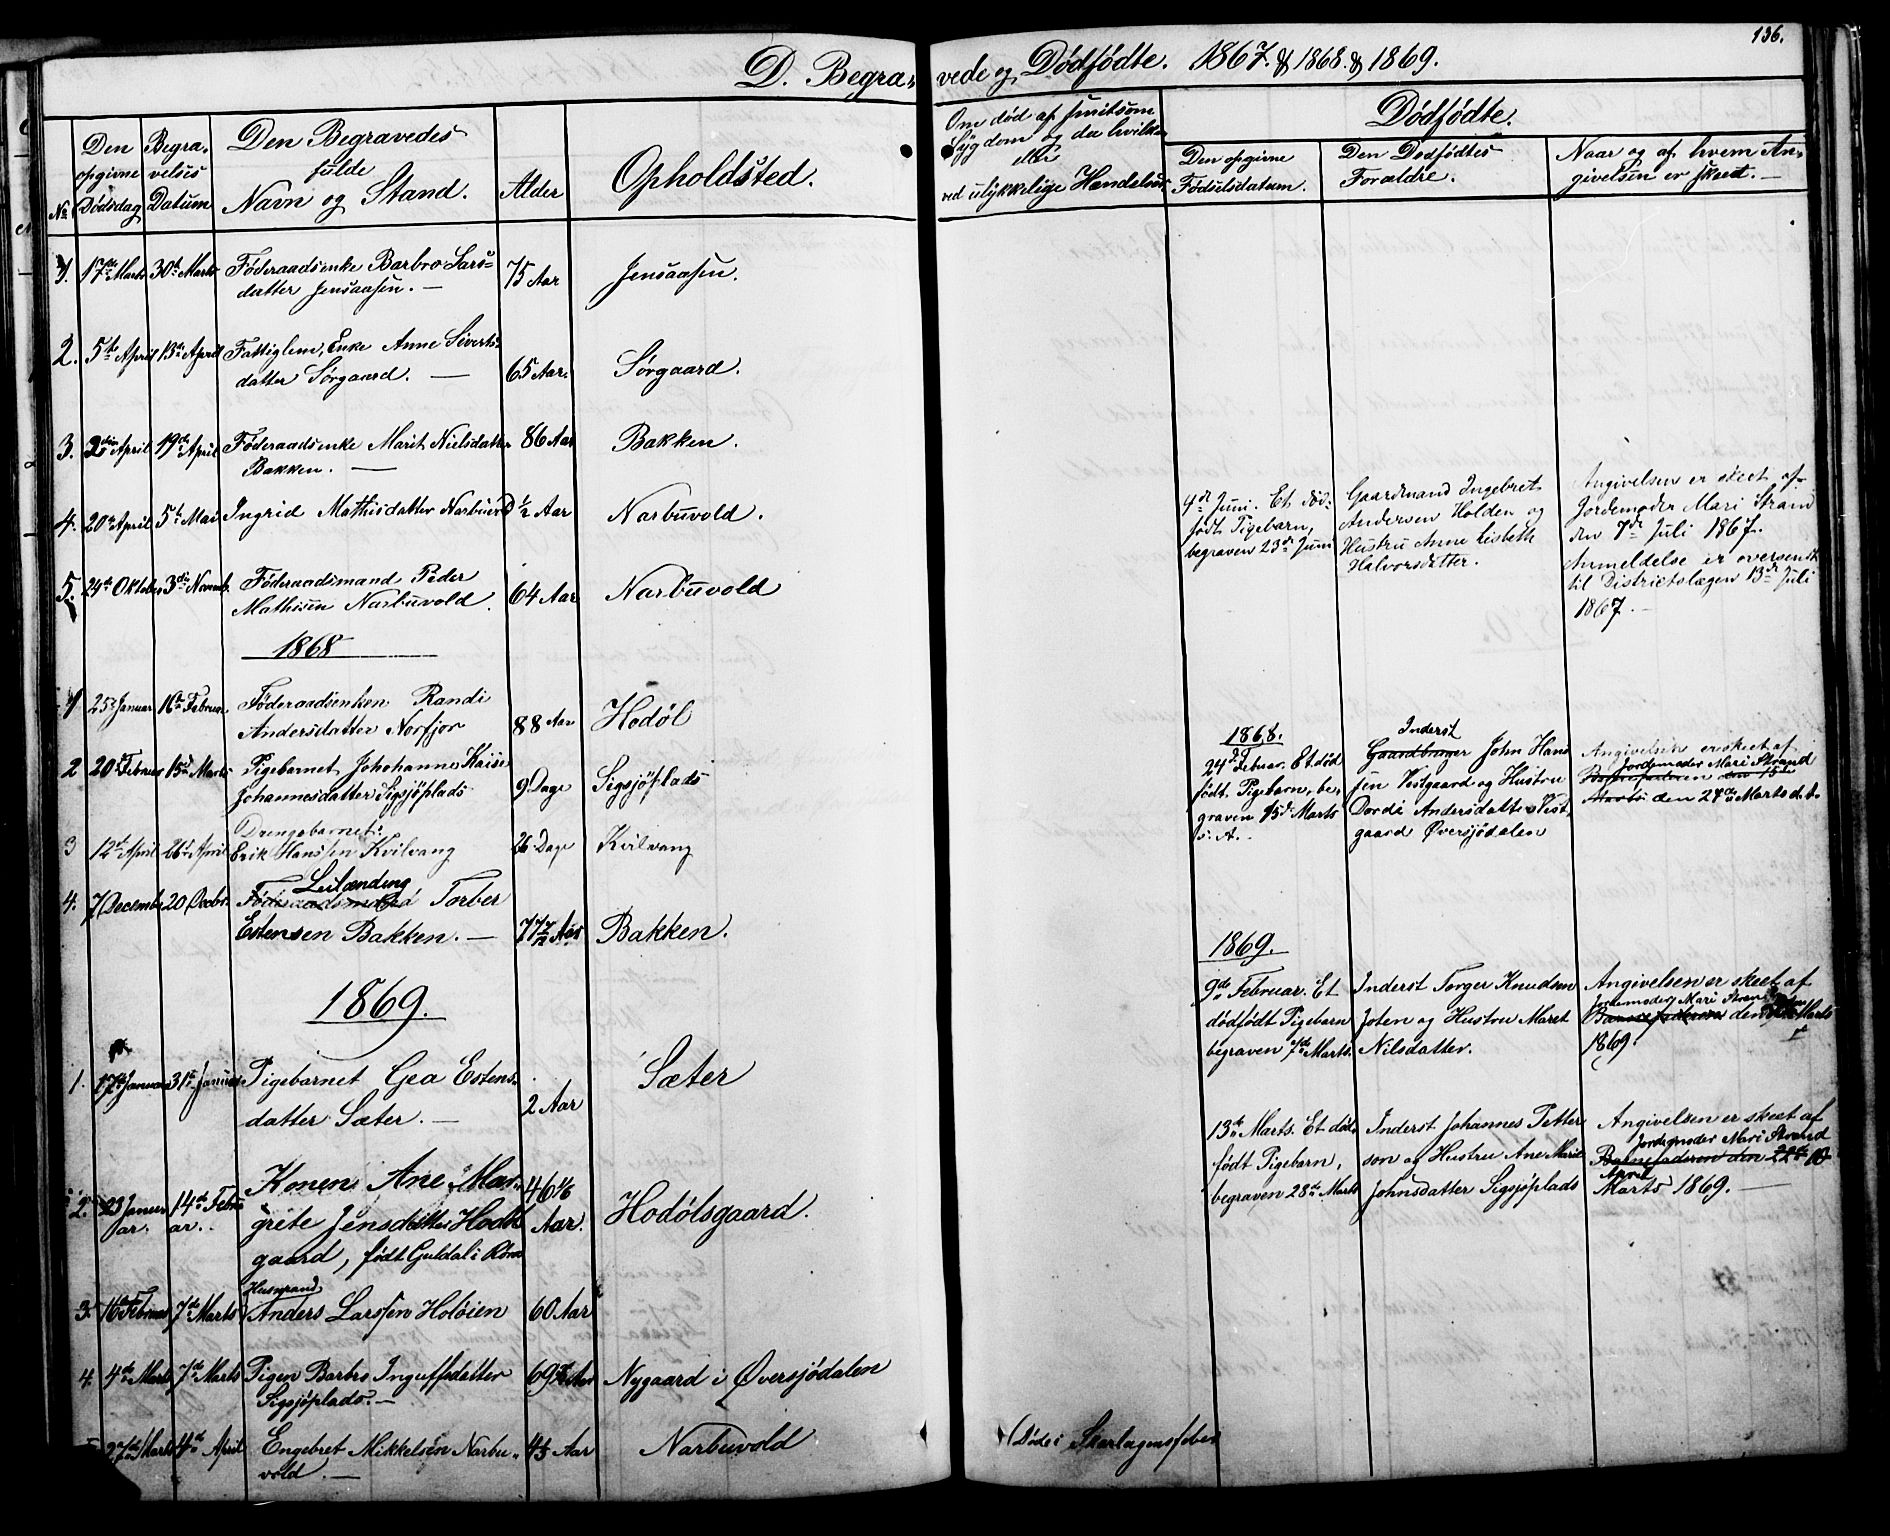 136.
D. Begravede og Dødfødte. 1867. & 1868. & 1869.
No.
Den opgivne Dødsdag
Begravelses Datum
Den Begravedes fulde Navn og Stand.
Alder
Opholdsted.
Om død af smitsom Sygdom og da hvilken eller ved ulykkelige Hændelser
Dødfødte.
Den opgivne Fødselsdatum.
Den Dødfødtes Forældre.
Naar og af hvem Angivelsen er skeet. —
1. 17de Marts 30te Marts Føderaadsenke Barbro Lars- 75 Aar Jensaasen.
datter Jensaasen. —
2. 5te April 13de April Fattiglem, Enke Anne Siverts-
datter Sørgaard. — 65 Aar. Sørgaard.
3. 2den April 19de April Føderaadsenke Marit Nielsdatter 86 Aar Bakken.
Bakken. —
4. 20de April 5te Mai Ingrid Mathisdatter Narbuvold ½ Aar Narbuvold.
5. 24de Oktober 3die Novemb. Føderaadsmand Peder
Mathisen Narbuvold. 64 Aar Narbuvold
1868
1 25de Januar 16de Februar Føderaadsenken Randi
Andersdatter Norfjor 88 Aar Hodøl
2 20de Februar 15de Marts Pigebarnet Johohanne Kaise
Johannesdatter Sigsjøplads 9 Dage Sigsjøplads
3 12te April 26de April Drengebarnet:
Erik Hanssen Kvilvang 26 Dage Kvilvang
Leilænding
4. 7 December 20 Decbr. Føderaadsmand Torber
Estensen Bakken. — 77 7/12 Aar Bakken.
1869.
1. 17de Januar 31te Januar Pigebarnet Gea Estens-
datter Sæter. — 2 Aar Sæter
2. 23 Januar. 14de Februar. Konen Ane Mar-
grete Jensdatter Hodøls- 46 Aar. Hodølsgaard.
gaard, født Guldal i
Husmand
3. 16de Februar 7de Marts Anders Larssen Holøien 60 Aar
4. 4de Marts 7de Marts Pigen Barbro Inguffsdatter 69 Aar Nygaard i Øversjødalen
Sigsjøplads. —
27de Marts 4de April Engebret Mikkelsen Narbu- Aar Narbuvold (Døde i Skarlagensfeber
vold. —
4de Juni. Et død-
født Pigebarn,
begraven 23de Juni
Gaardmand Ingebret
Andersen Holden og
Hustru Anne Lisbeth
Halvorsdatter.
Angivelsen er skeet af
Jordemoder Mari Strand
den 7de Juli 1867.
Anmeldelse er oversendt
til Districtslægen 13de Juli
1867. —
1868.
24de Februar. Et død
født. Pigebarn, be-
graven 15de Marts
s. A.
Inderst
Gaardbruger John Han-
sen Vestgaard og Hustru
Dordi Andersdatter Vest-
gaard Øversjødalen
Angivelsen er skeet af
Jordemoder Mari Strand
Barnefaderen den 15de
Marts den 27de Marts d. A.
1869.
9de Februar. Et
dødfødt Pigebarn
begraven 7de Marts.
Inderst Torger Knudsen
Joten og Hustru Maret
Nilsdatter.
Angivelsen er skeet af
Jordemoder Mari Strand
Barnefaderen den Marts
1869.
13de Marts. Et død-
født Pigebarn,
begraven 28de Marts
Inderst Johannes Petter
son og Hustru Ane Marie
Johnsdatter Sigsjøplads
Angivelsen er skeet af
Jordemoder Mari Strand
Barnefaderen den 22de 10
April
Marts 1869. —